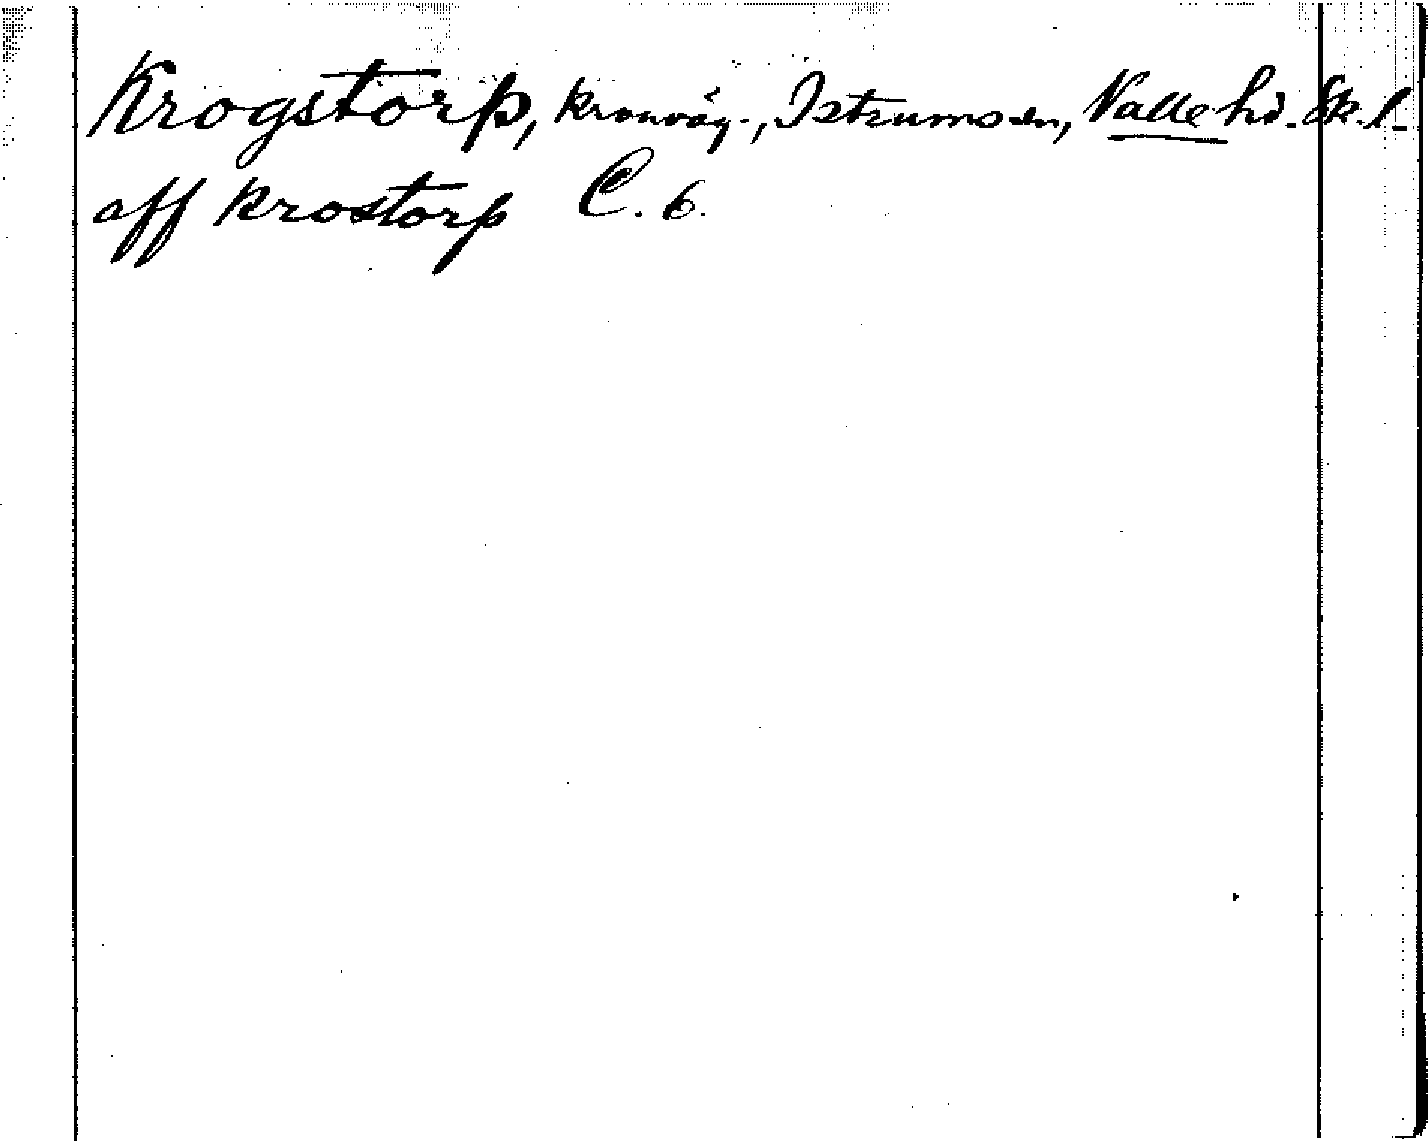 Krogstorp, kronoäg., Istrums sn, Valle hd. Sk. l.
aff krostorp C. 6.